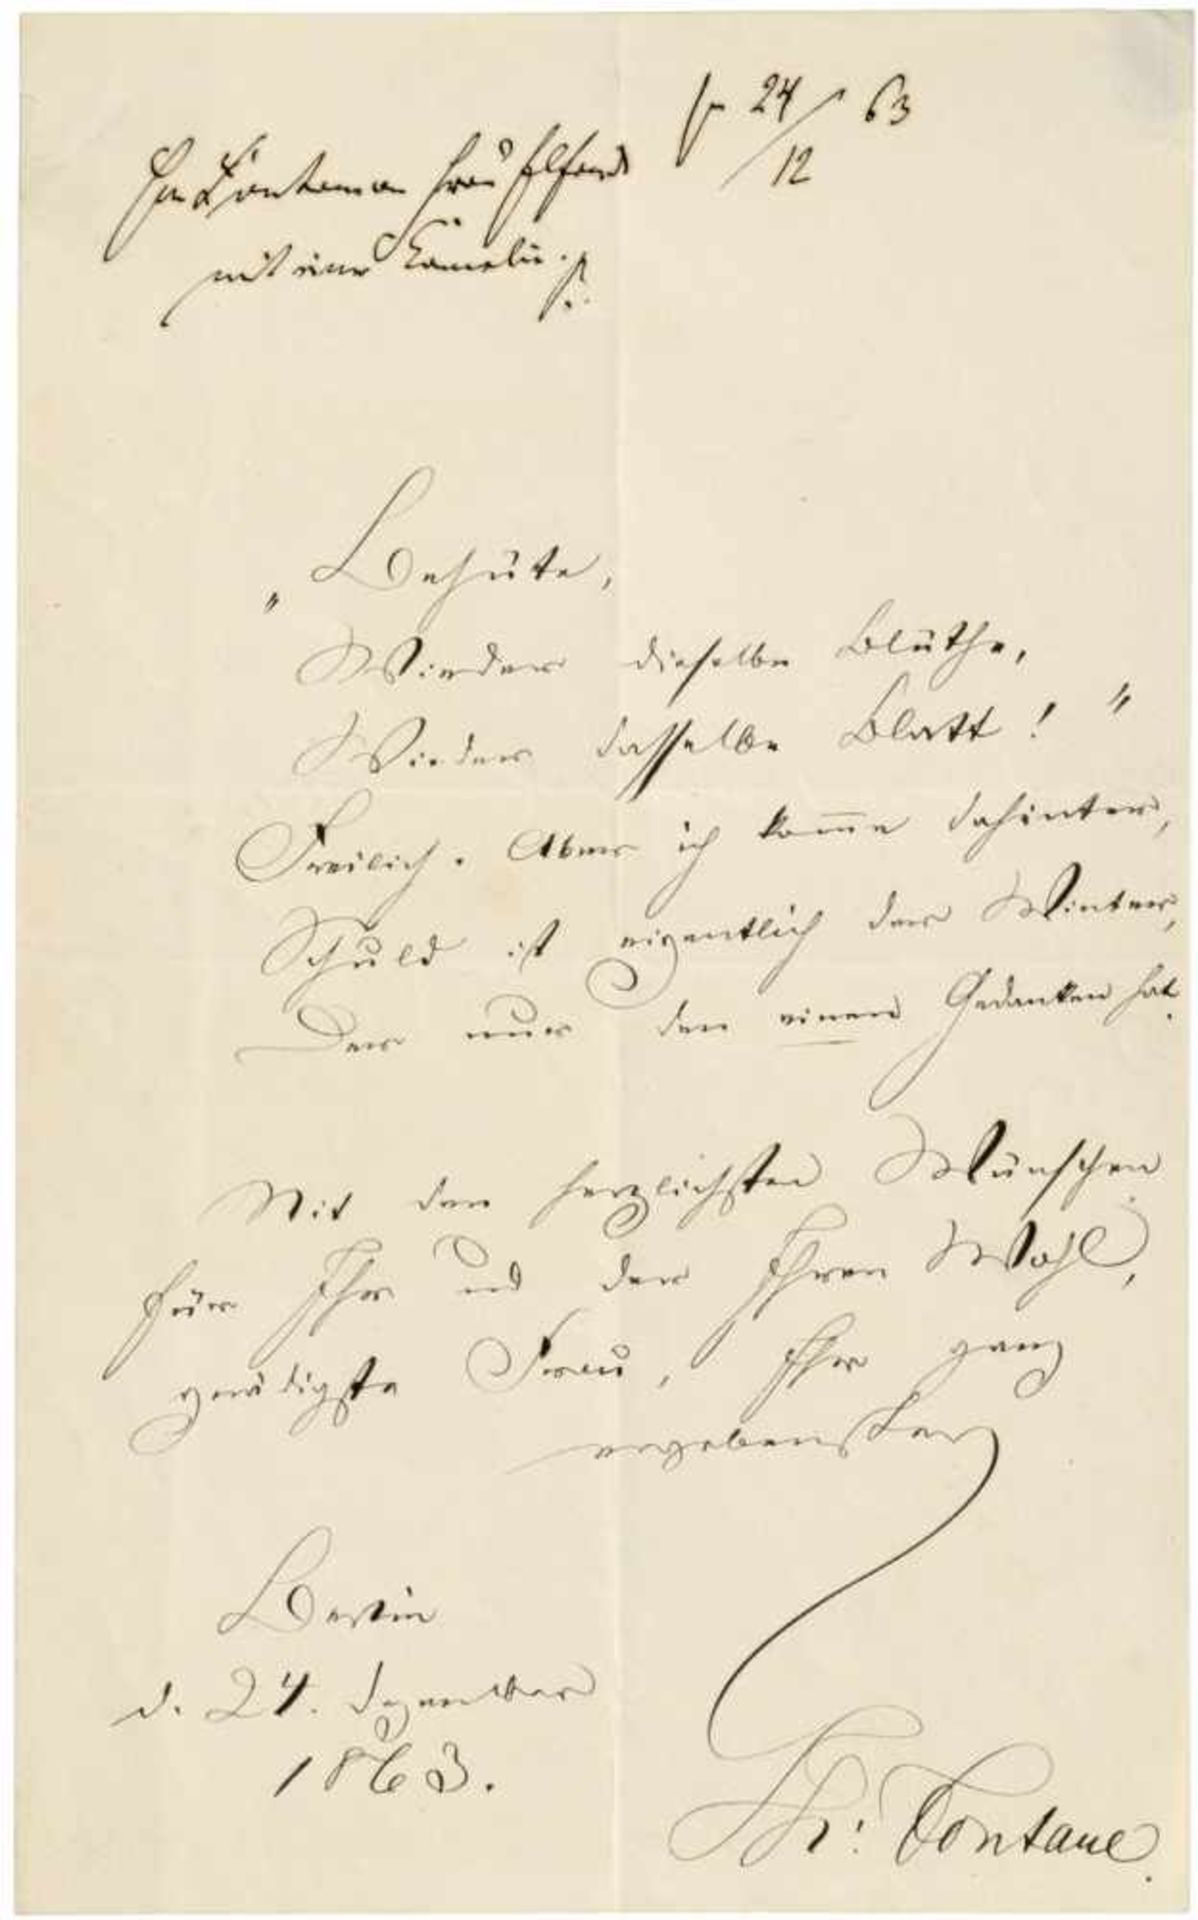 24/12 63
Fontane an Frau
mit einer Camelie.
„Behüte,
Wieder dieselbe Blüthe,
Wieder dasselbe Blatt!"
Freilich. Aber ich komme dahinter,
Schuld ist eigentlich der Winter,
Der nur den einen Gedanken hat.
Mit den herzlichsten Wünschen
für Ihr und der Ihren Wohl,
gnädigste Frau, Ihr ganz
ergebenster
Berlin
d. 24. Dezember
1863.
Th: Fontane.